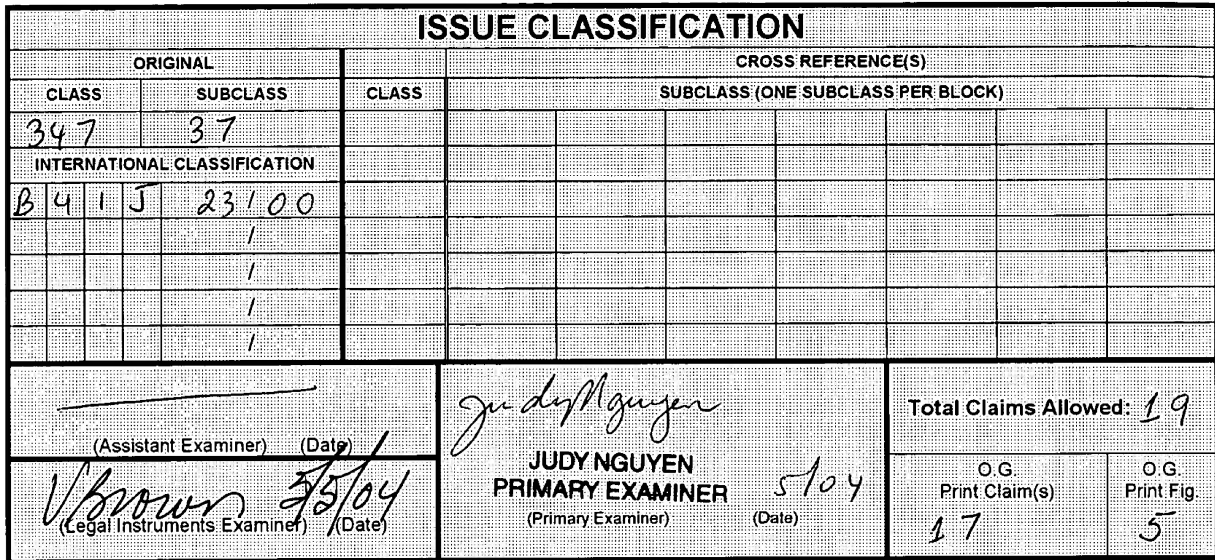 ISSUE CLASSIFICATION
ORIGINAL CROSS REFERENCE(S)
CLASS SUBCLASS CLASS SUBCLASS (ONE SUBCLASS PER BLOCK)
347 37
INTERNATIONAL CLASSIFICATION
B 4 1 J 23/00
/
/
/
/
(Assistant Examiner) (Date)
VBrown 5/5/04
(Legal Instruments Examiner) (Date)
Judy Nguyen
JUDY NGUYEN
PRIMARY EXAMINER 5/04
(Primary Examiner) (Date)
Total Claims Allowed: 19
O.G. O.G.
Print Claim(s) Print Fig.
17 5